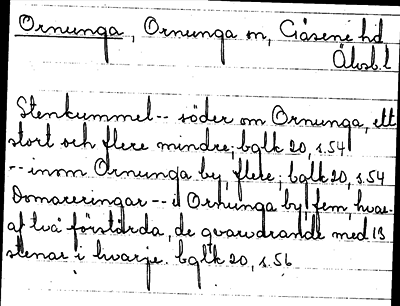 Ornunga, Ornunga sn, Gäsene hd
Älvsb. l
Stenkummel -- söder om Ornunga, ett
stort och flere mindre; bglk 20, s. 54
-- inom Ornunga by, flere; bglk 20, s. 54
Domareringar -- i Ornunga by, fem, hvar-
af två förstörda, de qvarvarande med 13
stenar i hvarje. bglk 20, s. 56